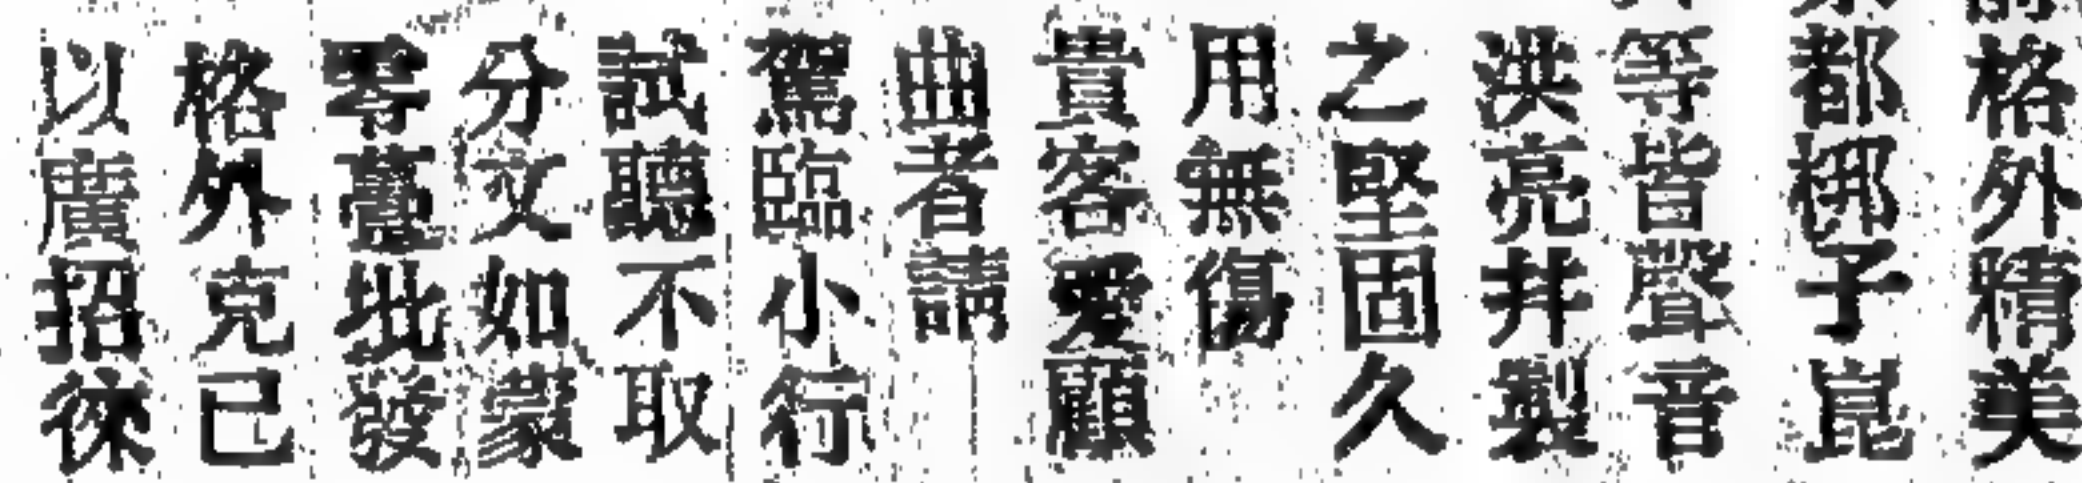 格外精美
都梆子崑
等皆聲音
洪亮幷製
之堅固久
用無傷
貴客愛顧
曲者請
駕臨小行
試聽不取
分文如蒙
零躉批發
格外克己
以廣招徠